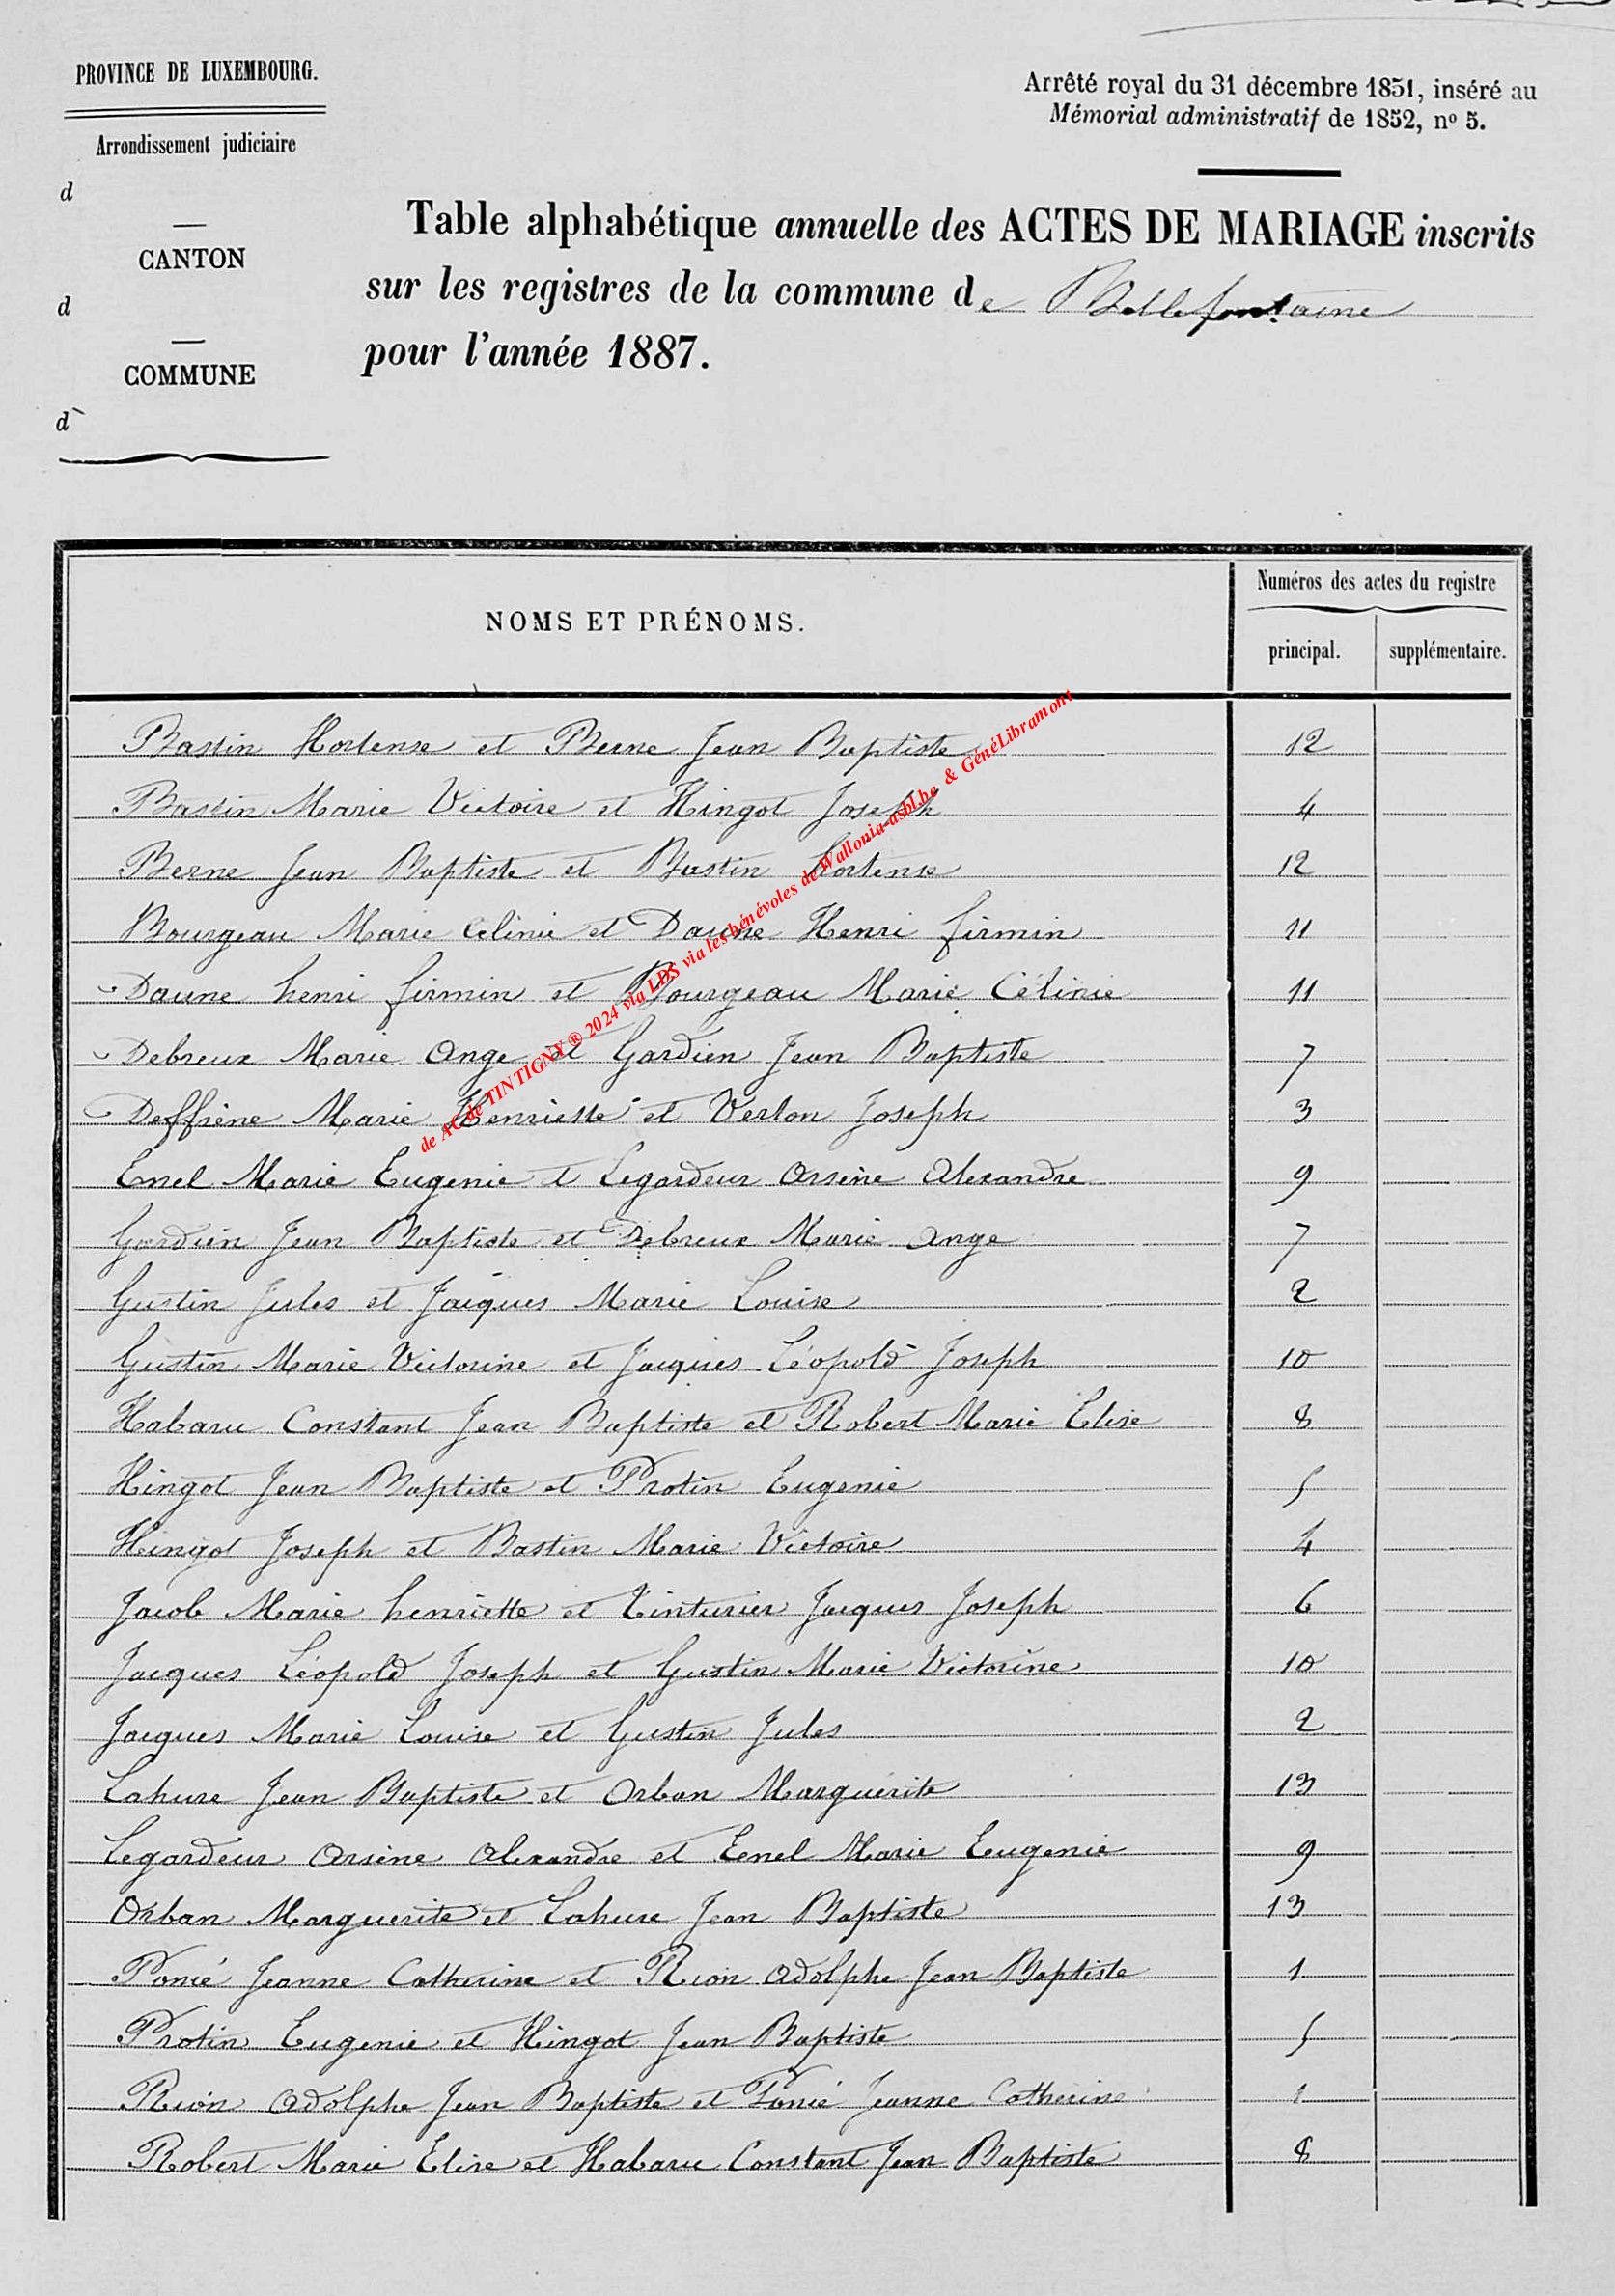 PROVINCE DE LUXEMBOURG.
Arrondissement judiciaire
d
CANTON
d
COMMUNE
d
Arrêté royal du 31 décembre 1851, inséré au
Mémorial administratif de 1852, nº 5.
Table alphabétique annuelle des ACTES DE MARIAGE inscrits
sur les registres de la commune de Bellefontaine
pour l'année 1887.
NOMS ET PRÉNOMS.
Numéros des actes du registre
principal. supplémentaire.
Bastin Hortense et Berne Jean Baptiste 12
Bastin Marie Victoire et Hingot Joseph 4
Berne Jean Baptiste et Bastin hortense 12
Bourgeau Marie Célinie et Daune Henri firmin 11
Daune henri firmin et Bourgeau Marie Célinie 11
Debreux Marie Ange et Gardien Jean Baptiste 7
Deffrène Marie Henriette et Verlon Joseph 3
Emel Marie Eugenie et Legardeur Arsène Alexandre 9
Gardien Jean Baptiste et Debreux Marie Ange 7
Gustin Jules et Jacques Marie Louise 2
Gustin Marie Victorine et Jacques Léopold Joseph 10
Habaru Constant Jean Baptiste et Robert Marie Elise 8
Hingot Jean Baptiste et Protin Eugenie 5
Hingot Joseph et Bastin Marie Victoire 4
Jacob Marie henriette et Tinturier Jacques Joseph 6
Jacques Léopold Joseph et Gustin Marie Victorine 10
Jacques Marie Louise et Gustin Jules 2
Lahure Jean Baptiste et Orban Marguerite 13
Legardeur Arsène Alexandre et Emel Marie Eugenie 9
Orban Marguerite et Lahure Jean Baptiste 13
Ponié Jeanne Catherine et Rion Adolphe Jean Baptiste 1
Protin Eugenie et Hingot Jean Baptiste 5
Rion Adolphe Jean Baptiste et Ponié Jeanne Catherine 1
Robert Marie Elise et Habaru Constant Jean Baptiste 8
de AC de TINTIGNY ® 2024 via LDS via les bénévoles de Wallonia-asbl.be & GénéLibramont